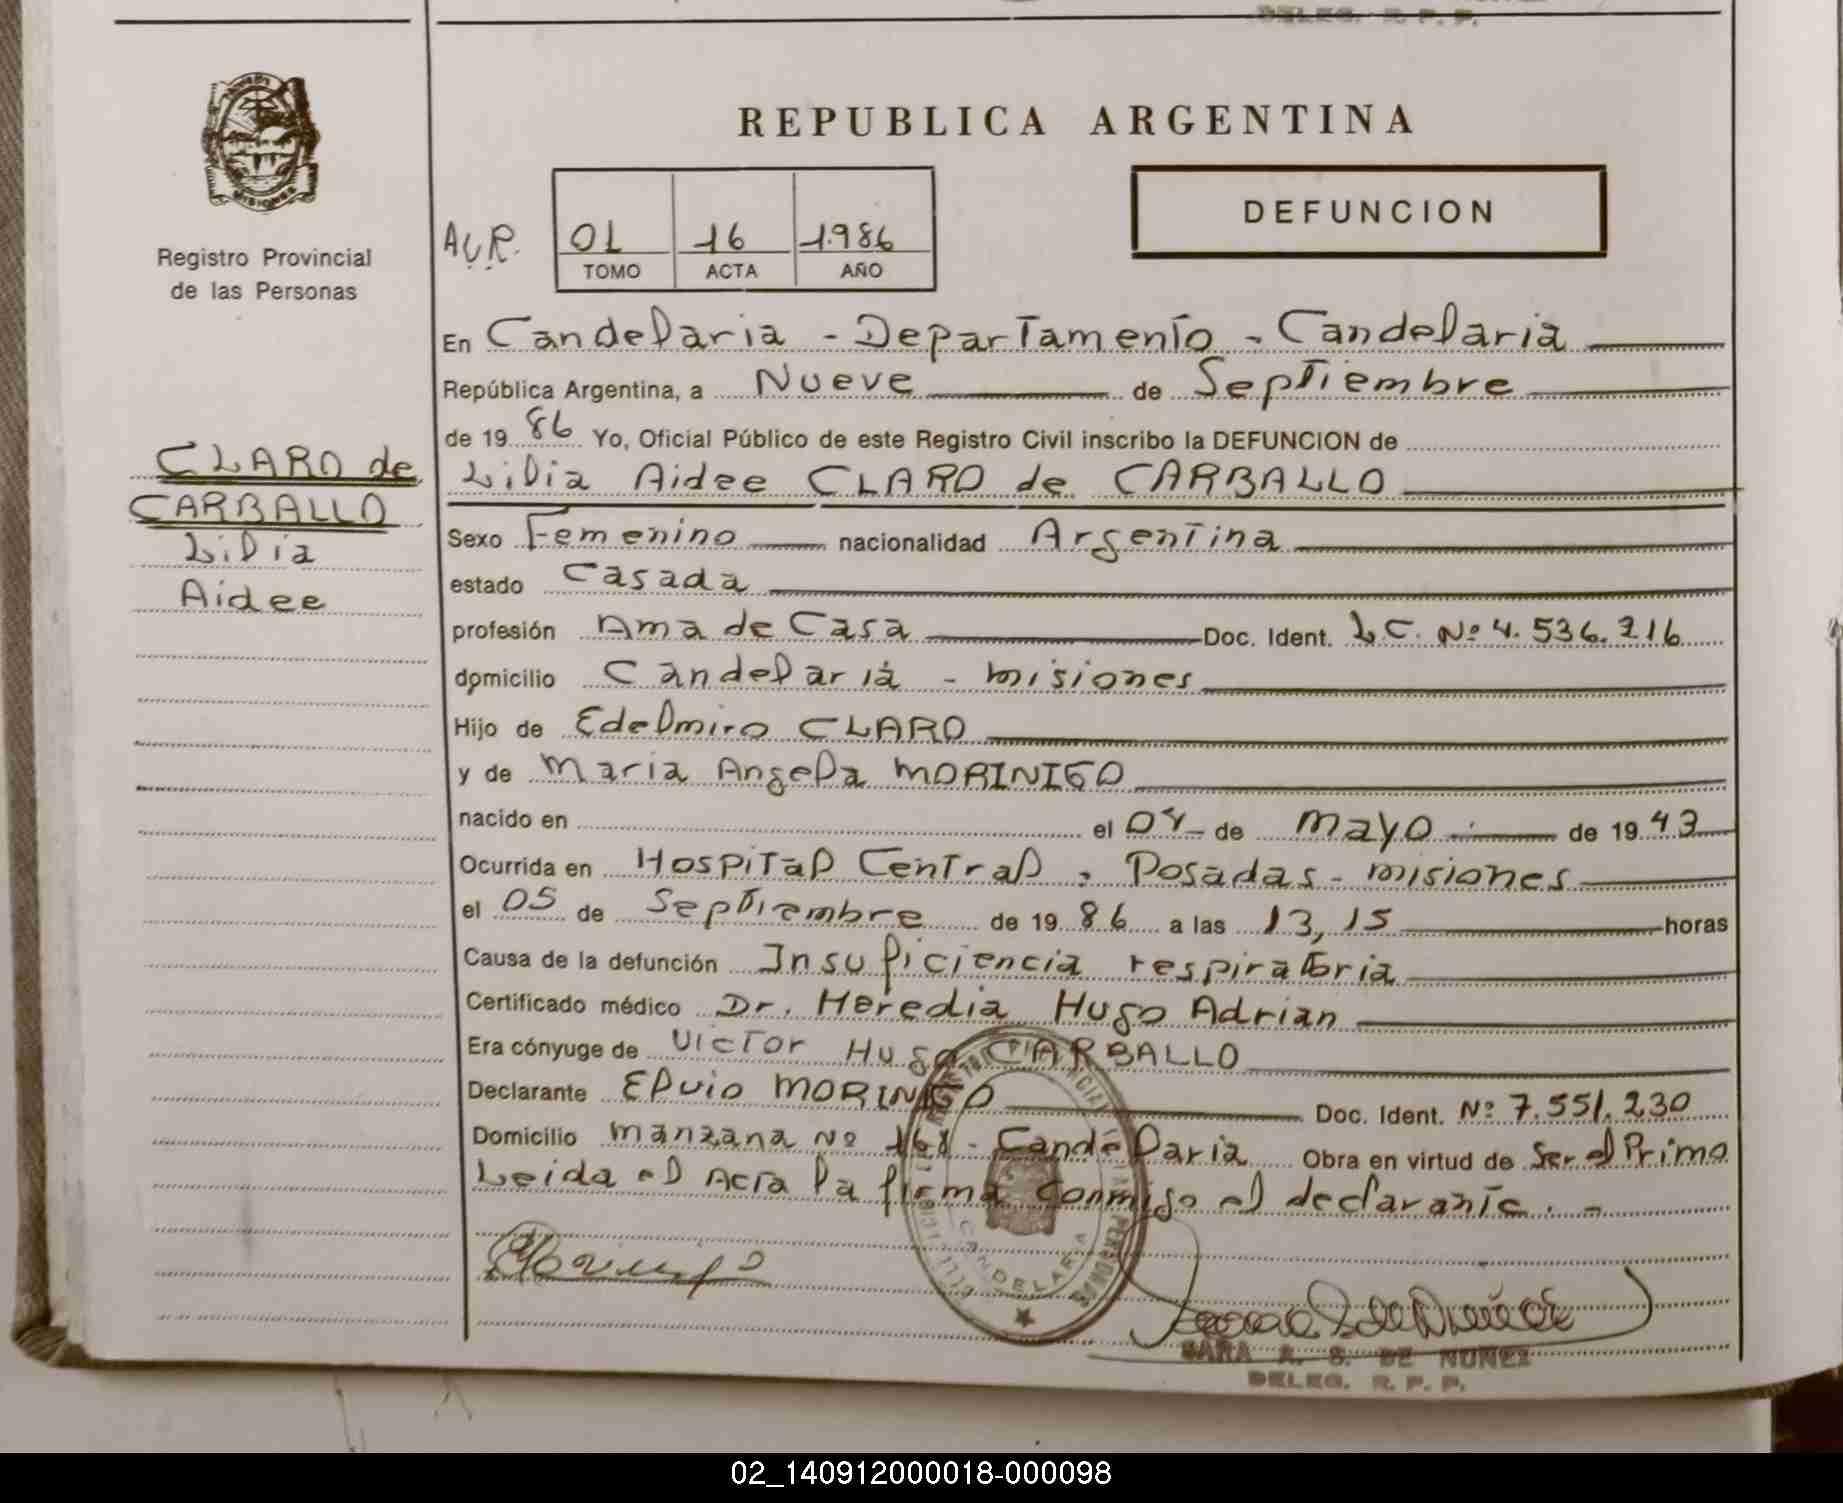 DELEG. R. P. P.
REPUBLICA ARGENTINA
MISIONES
Registro Provincial
de las Personas
AUR.
01 16 1.986
TOMO ACTA AÑO
DEFUNCION
En Candelaria - Departamento - Candelaria
República Argentina, a Nueve de Septiembre
de 19 86 Yo, Oficial Público de este Registro Civil inscribo la DEFUNCION de
CLARO de
CARBALLO
Lilia
Aidee
Lilia Aidee CLARO de CARBALLO
Sexo Femenino nacionalidad Argentina
estado Casada
profesión Ama de Casa Doc. Ident. L.C. Nº 4.536.216
domicilio Candelaria - Misiones
Hijo de Edelmiro CLARO
y de Maria Angela MORINIGO
nacido en el 04 de Mayo de 19 43
Ocurrida en Hospital Central, Posadas - Misiones
el 05 de Septiembre de 19 86 a las 13,15 horas
Causa de la defunción Insuficiencia respiratoria
Certificado médico Dr. Heredia Hugo Adrian
Era cónyuge de Victor Hugo CARBALLO
Declarante Elvio MORINIGO Doc. Ident. Nº 7.551.230
Domicilio Manzana Nº 168 - Candelaria Obra en virtud de Ser el Primo
Leida el Acta la firma conmigo el declarante. -
CANDELARIA
SARA A. S. DE NUÑEZ
DELEG. R. P. P.
02_140912000018-000098